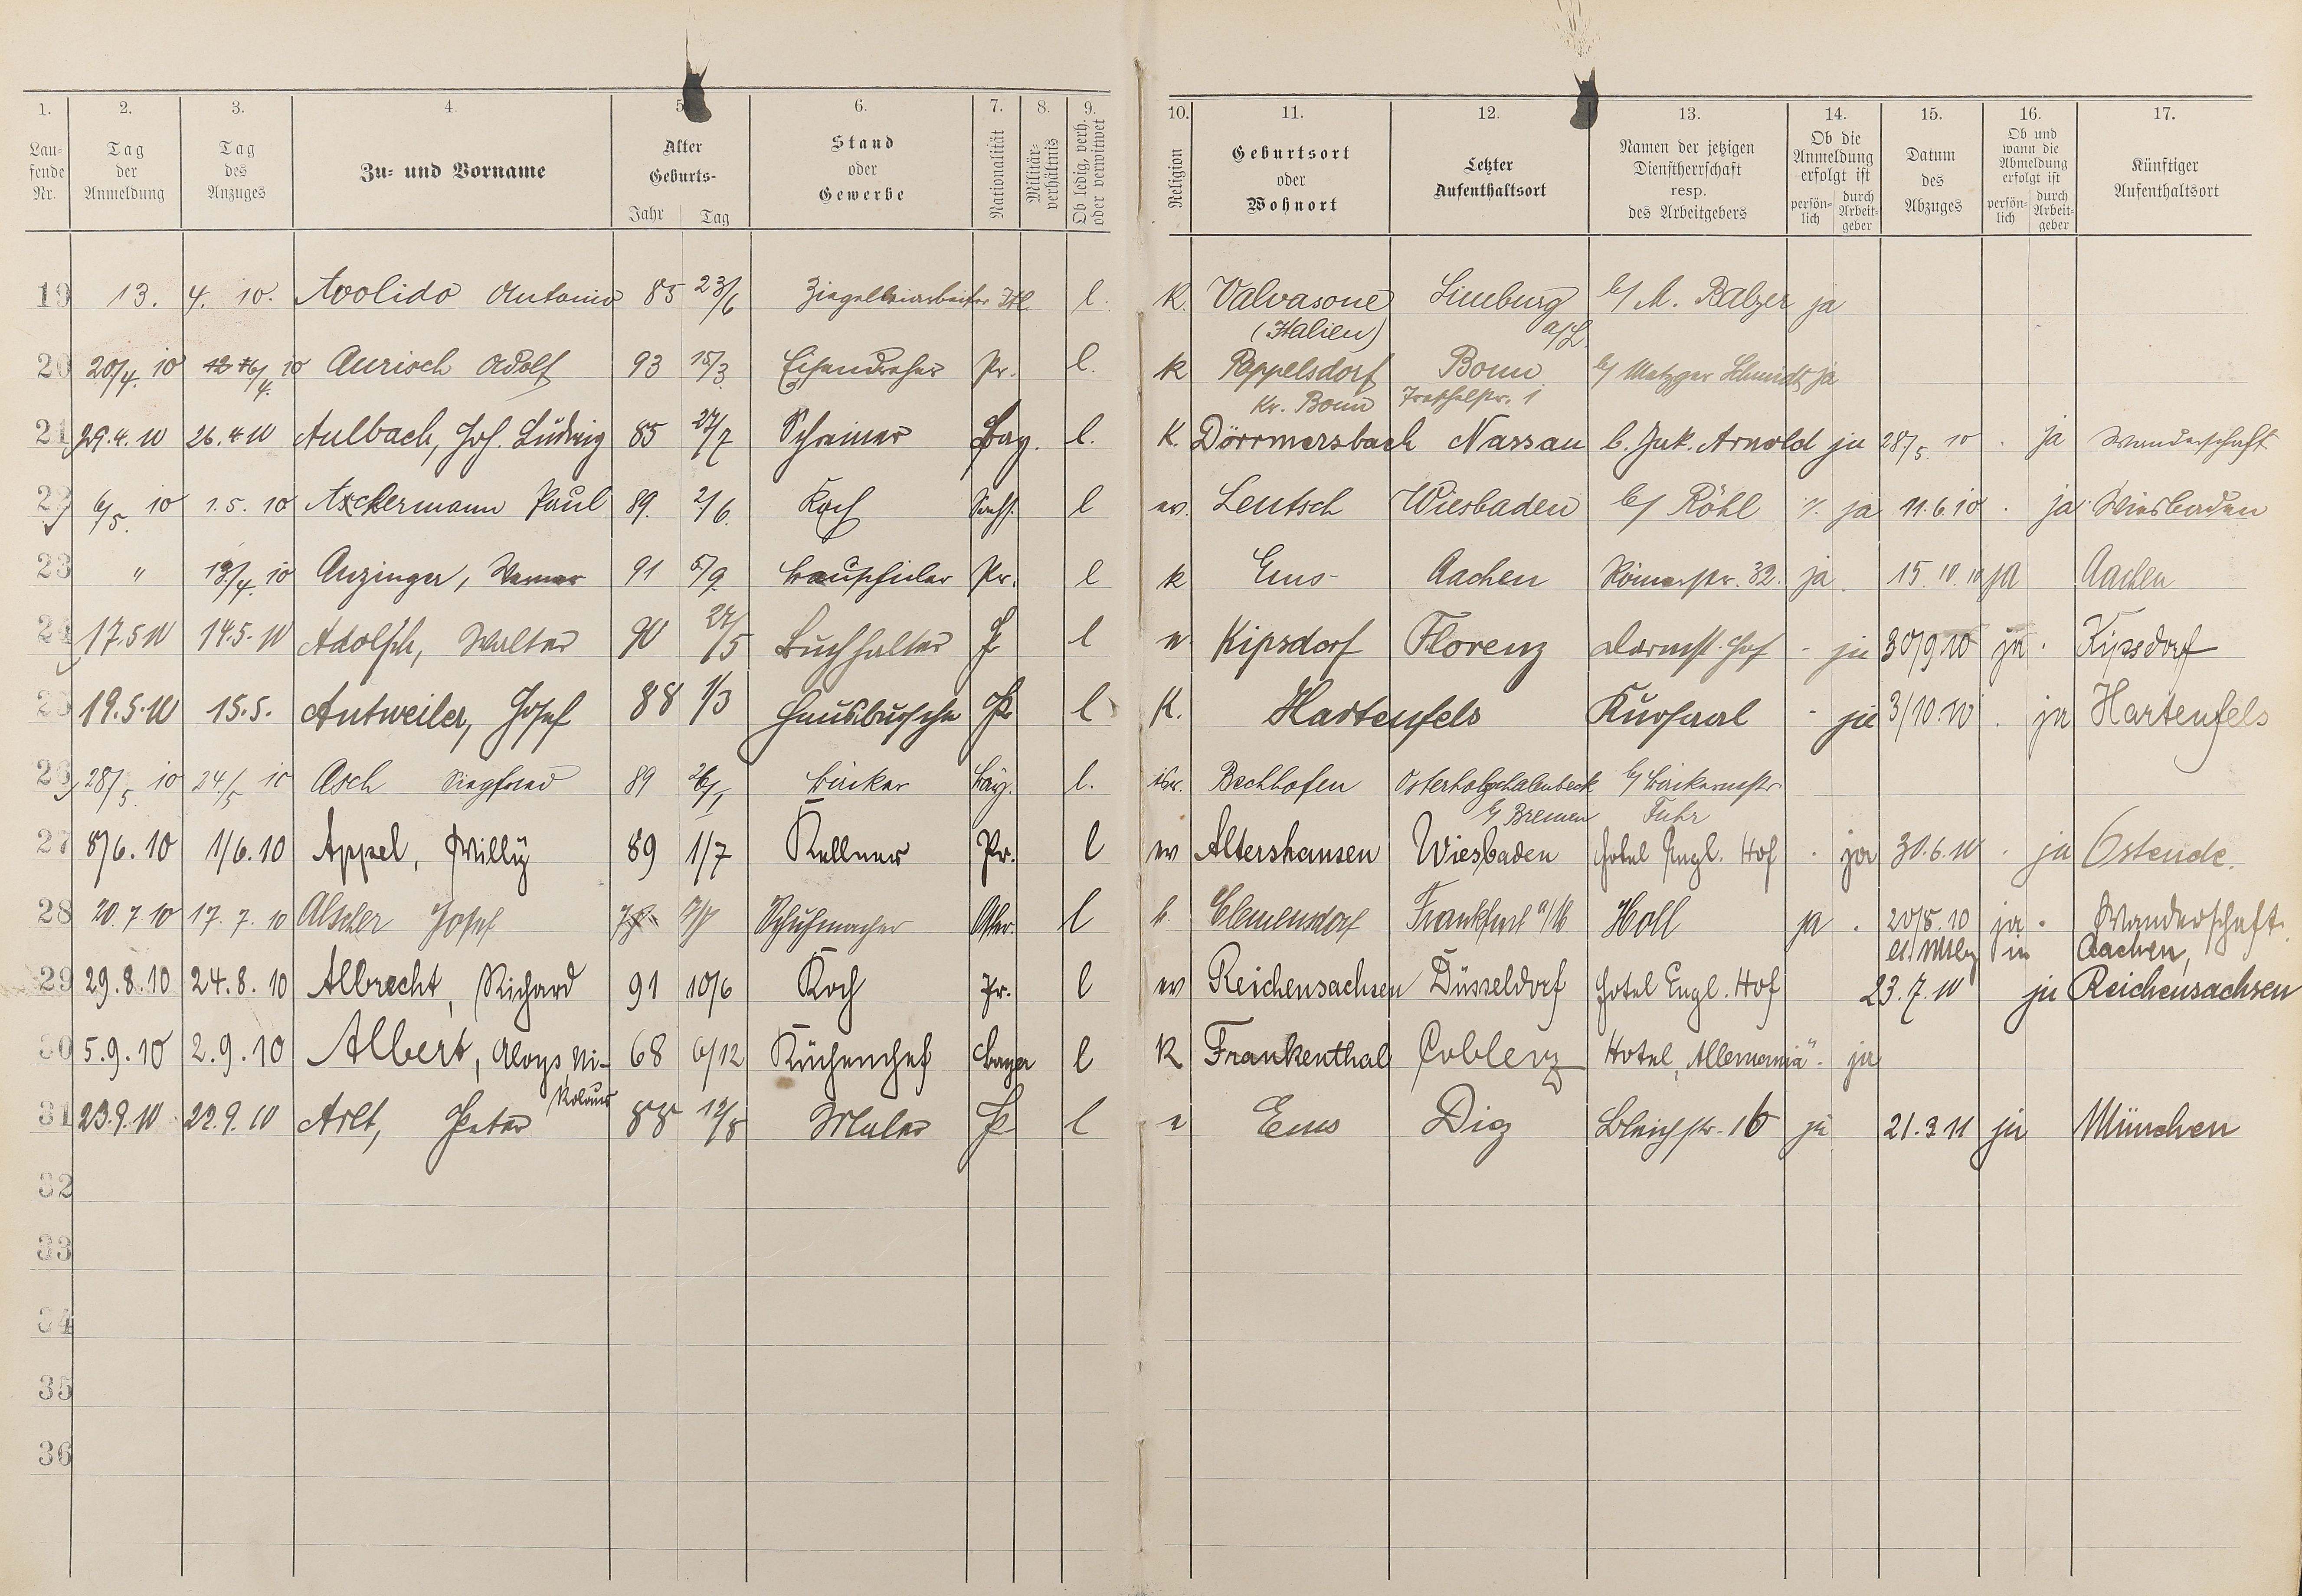 1. 2. 3. 4. 5. 6. 7. 8. 9. 10. 11. 12. 13. 14. 15. 16. 17.
Lau-
fende
Nr.
Tag
der
Anmeldung
Tag
des
Anzuges
Zu- und Vorname
Alter
Geburts-
Jahr Tag
Stand
oder
Gewerbe
Nationalität
Militär-
verhältnis
Ob ledig, verh.
oder verwitwet
Religion
Geburtsort
oder
Wohnort
Letzter
Aufenthaltsort
Namen der jetzigen
Dienstherrschaft
resp.
des Arbeitgebers
Ob die
Anmeldung
erfolgt ist
persön-
lich
durch
Arbeit-
geber
Datum
des
Abzuges
Ob und
wann die
Abmeldung
erfolgt ist
persön-
lich
durch
Arbeit-
geber
Künftiger
Aufenthaltsort
19 13. 4. 10. Avolido Antonio 85 23/6 Itl. l. K. Valvasone Limburg b/ A. Balzer ja
(Italien) a/L.
20 20/4. 10 10 Aurisch Adolf 93 15/3 Eisendreher Pr. l. K Poppelsdorf Bonn b/ Metzger Schmidt ja
Kr. Bonn 1
21 29.4.10 26.4.10 Aulbach, Jos. Ludwig 85 27/7 Schreiner Bay. l. K. Dörrmersbach Nassau b. Jak. Arnold ja 28/5. 10 . ja Wanderschaft
22 6/5. 10 1.5.10 Ackermann Paul 89. 2/6. Koch Sachs. l ev. Leutsch Wiesbaden b/ Röhl ja 11.6.10 . ja Wiesbaden
23 " 13/4. 10 Anzinger, Werner 91 5/9. Bauschüler Pr. l k Ems Aachen Römerstr. 32. ja . 15.10.10 ja Aachen
24 17.5.10 14.5.10 Adolph, Walter 90 27/5 Buchhalter l Kipsdorf Florenz Darmst. Hof - ja 30/9.10 ja . Kipsdorf
25 19.5.10 15.5. Antweiler, Josef 88 1/3 Hausbursche Pr. l K. Hartenfels Kursaal - ja 3/10.10 . ja Hartenfels
26 28/5. 10 24/5 10 Asch Siegfried 89 Bäcker Bay. l. isr. Bechhofen b/ Bäckermstr
b/ Bremen Fuhr
27 8/6.10 1/6.10 Appel, Willy 89 1/7 Kellner Pr. l ev Altershausen Wiesbaden Hotel Engl. Hof . ja 30.6.10 . ja Ostende.
28 20.7.10 17.7.10 Alscher Josef Schuhmacher l k. Clemensdorf Frankfurt a/M. Holl ja . 20/8.10 ja . Wanderschaft.
in Aachen,
29 29.8.10 24.8.10 Albrecht, Richard 91 10/6 Koch Pr. l ev Reichensachsen Düsseldorf Hotel Engl. Hof 23.7.10 ja Reichensachsen
30 5.9.10 2.9.10 Albert, Aloys Ni- 68 6/12 Küchenchef Bayer l K Frankenthal Coblenz Hotel „Allemania" - ja
kolaus
31 23.9.10 22.9.10 Arlt, Peter 88 12/8 Maler Pr l Ems Diez Bleichstr. 16 ja 21.3.11 ja München
32
33
34
35
36